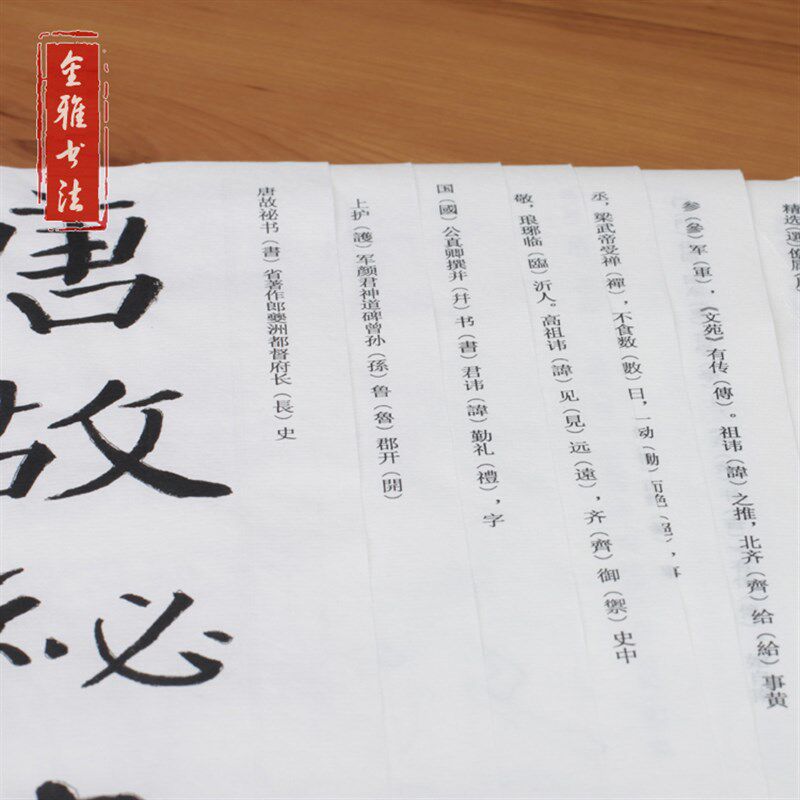 金雅书法
唐故祕
唐故祕书（書）省著作郎夔洲都督府长（長）史
上护（護）军颜君神道碑曾孙（孫）鲁（魯）郡开（開）
国（國）公真卿撰并（幷）书（書）君讳（諱）勤礼（禮），字
敬，琅琊临（臨）沂人。高祖讳（諱）见（見）远（遠），齐（齊）御（禦）史中
丞，梁武帝受禅（禪），不食数（數）日，一动（動）
参（參）军（軍），《文苑》有传（傳）。祖讳（諱）之推，北齐（齊）给（給）事黄
精选（選）